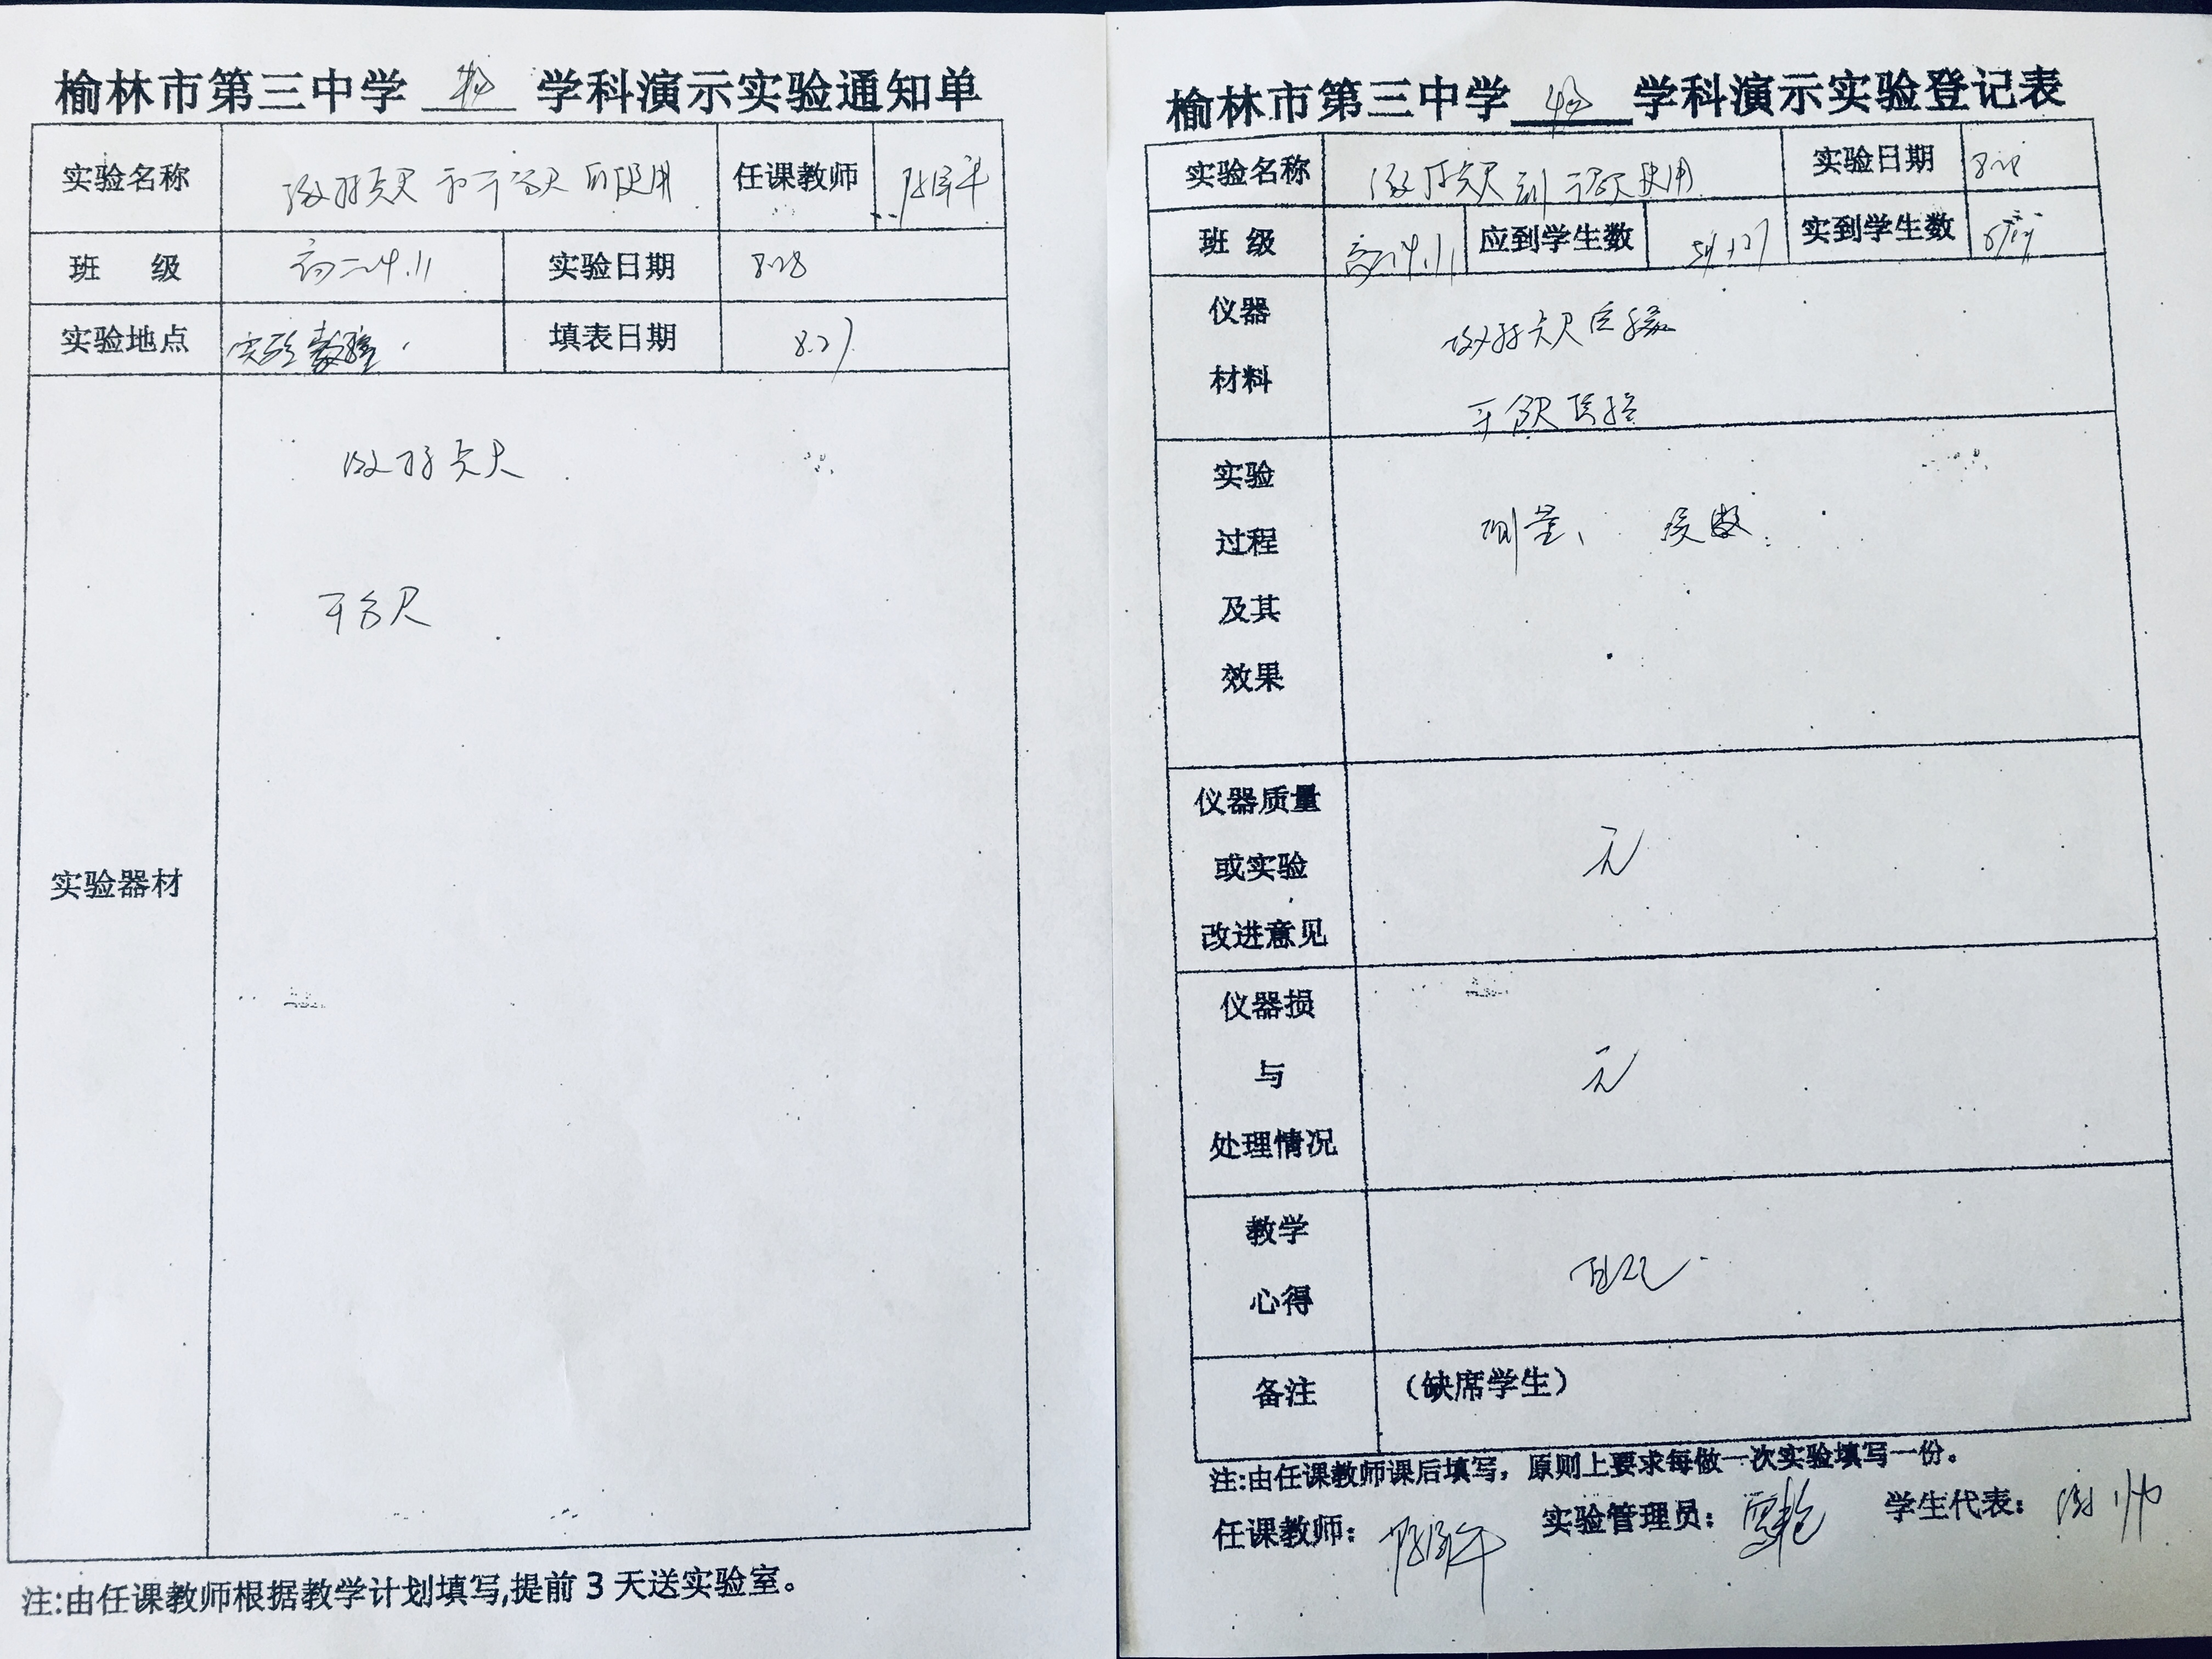 榆林市第三中学 物 学科演示实验通知单
实验名称 游标卡尺和千分尺的使用 任课教师
班 级 高二4.11 实验日期 8.28
实验地点 实验教室 填表日期 8.27
实验器材
游标卡尺
千分尺
注:由任课教师根据教学计划填写,提前3天送实验室。
榆林市第三中学 物 学科演示实验登记表
实验名称 游标卡尺 使用 实验日期 8.28
班 级 高二4.11 应到学生数 实到学生数
仪器
材料
游标卡尺
千分尺
实验
过程
及其
效果
测量、 读数
仪器质量
或实验
改进意见
无
仪器损
与
处理情况
无
教学
心得
备注 (缺席学生)
注:由任课教师课后填写,原则上要求每做一次实验填写一份。
任课教师: 实验管理员: 学生代表: